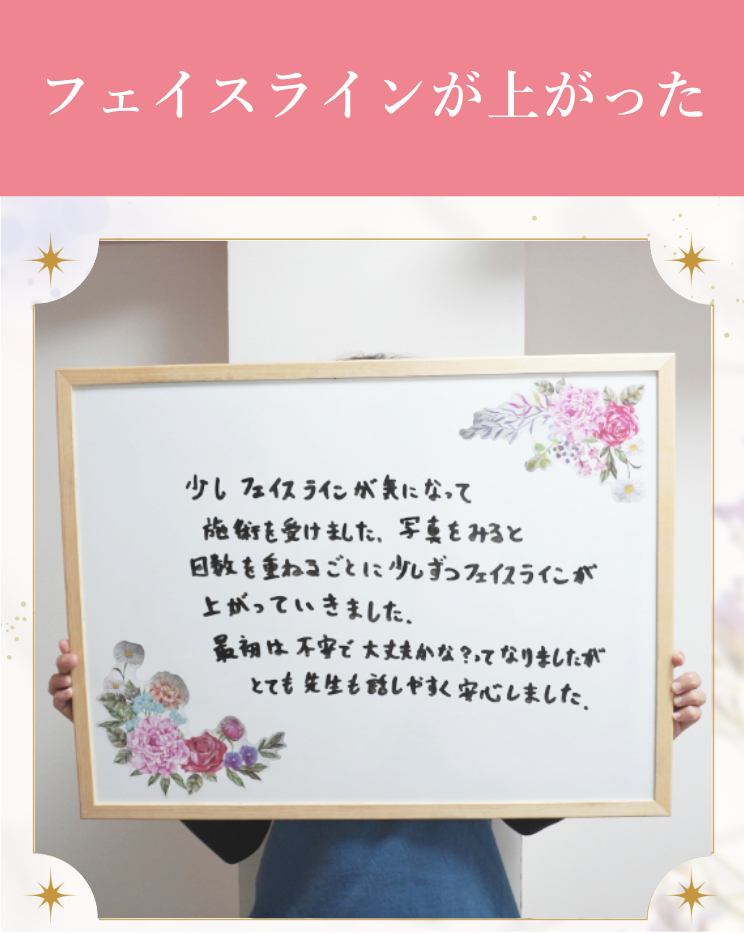 フェイスラインが上がった
少しフェイスラインが気になって
施術を受けました。写真をみると
日数を重ねるごとに少しずつフェイスラインが
上がっていきました。
最初は不安で大丈夫かな?ってなりましたが
とても先生も話しやすく安心しました。